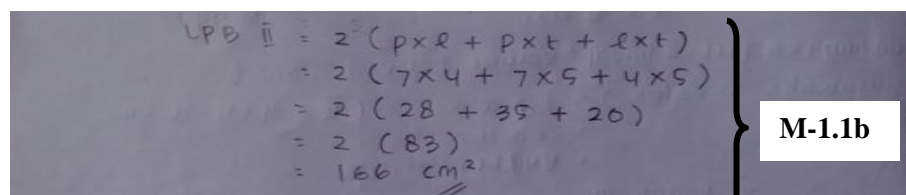 LPB II = 2 (p x l + p x t + l x t)
= 2 (7 x 4 + 7 x 5 + 4 x 5)
= 2 (28 + 35 + 20)
= 2 (83)
= 166 cm²
M-1.1b